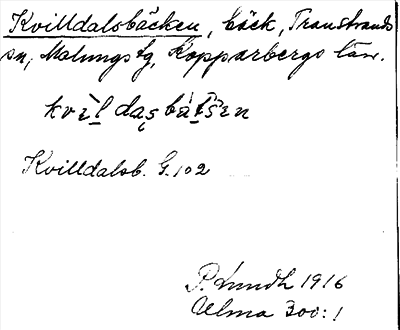 Kvilldalsbäcken, bäck, Transtrands
sn, Malungs tg, Kopparbergs län.
kvìl das̨ bätšen
Kvilldalsb. G. 102
P. Lundh 1916
Ulma 300:1